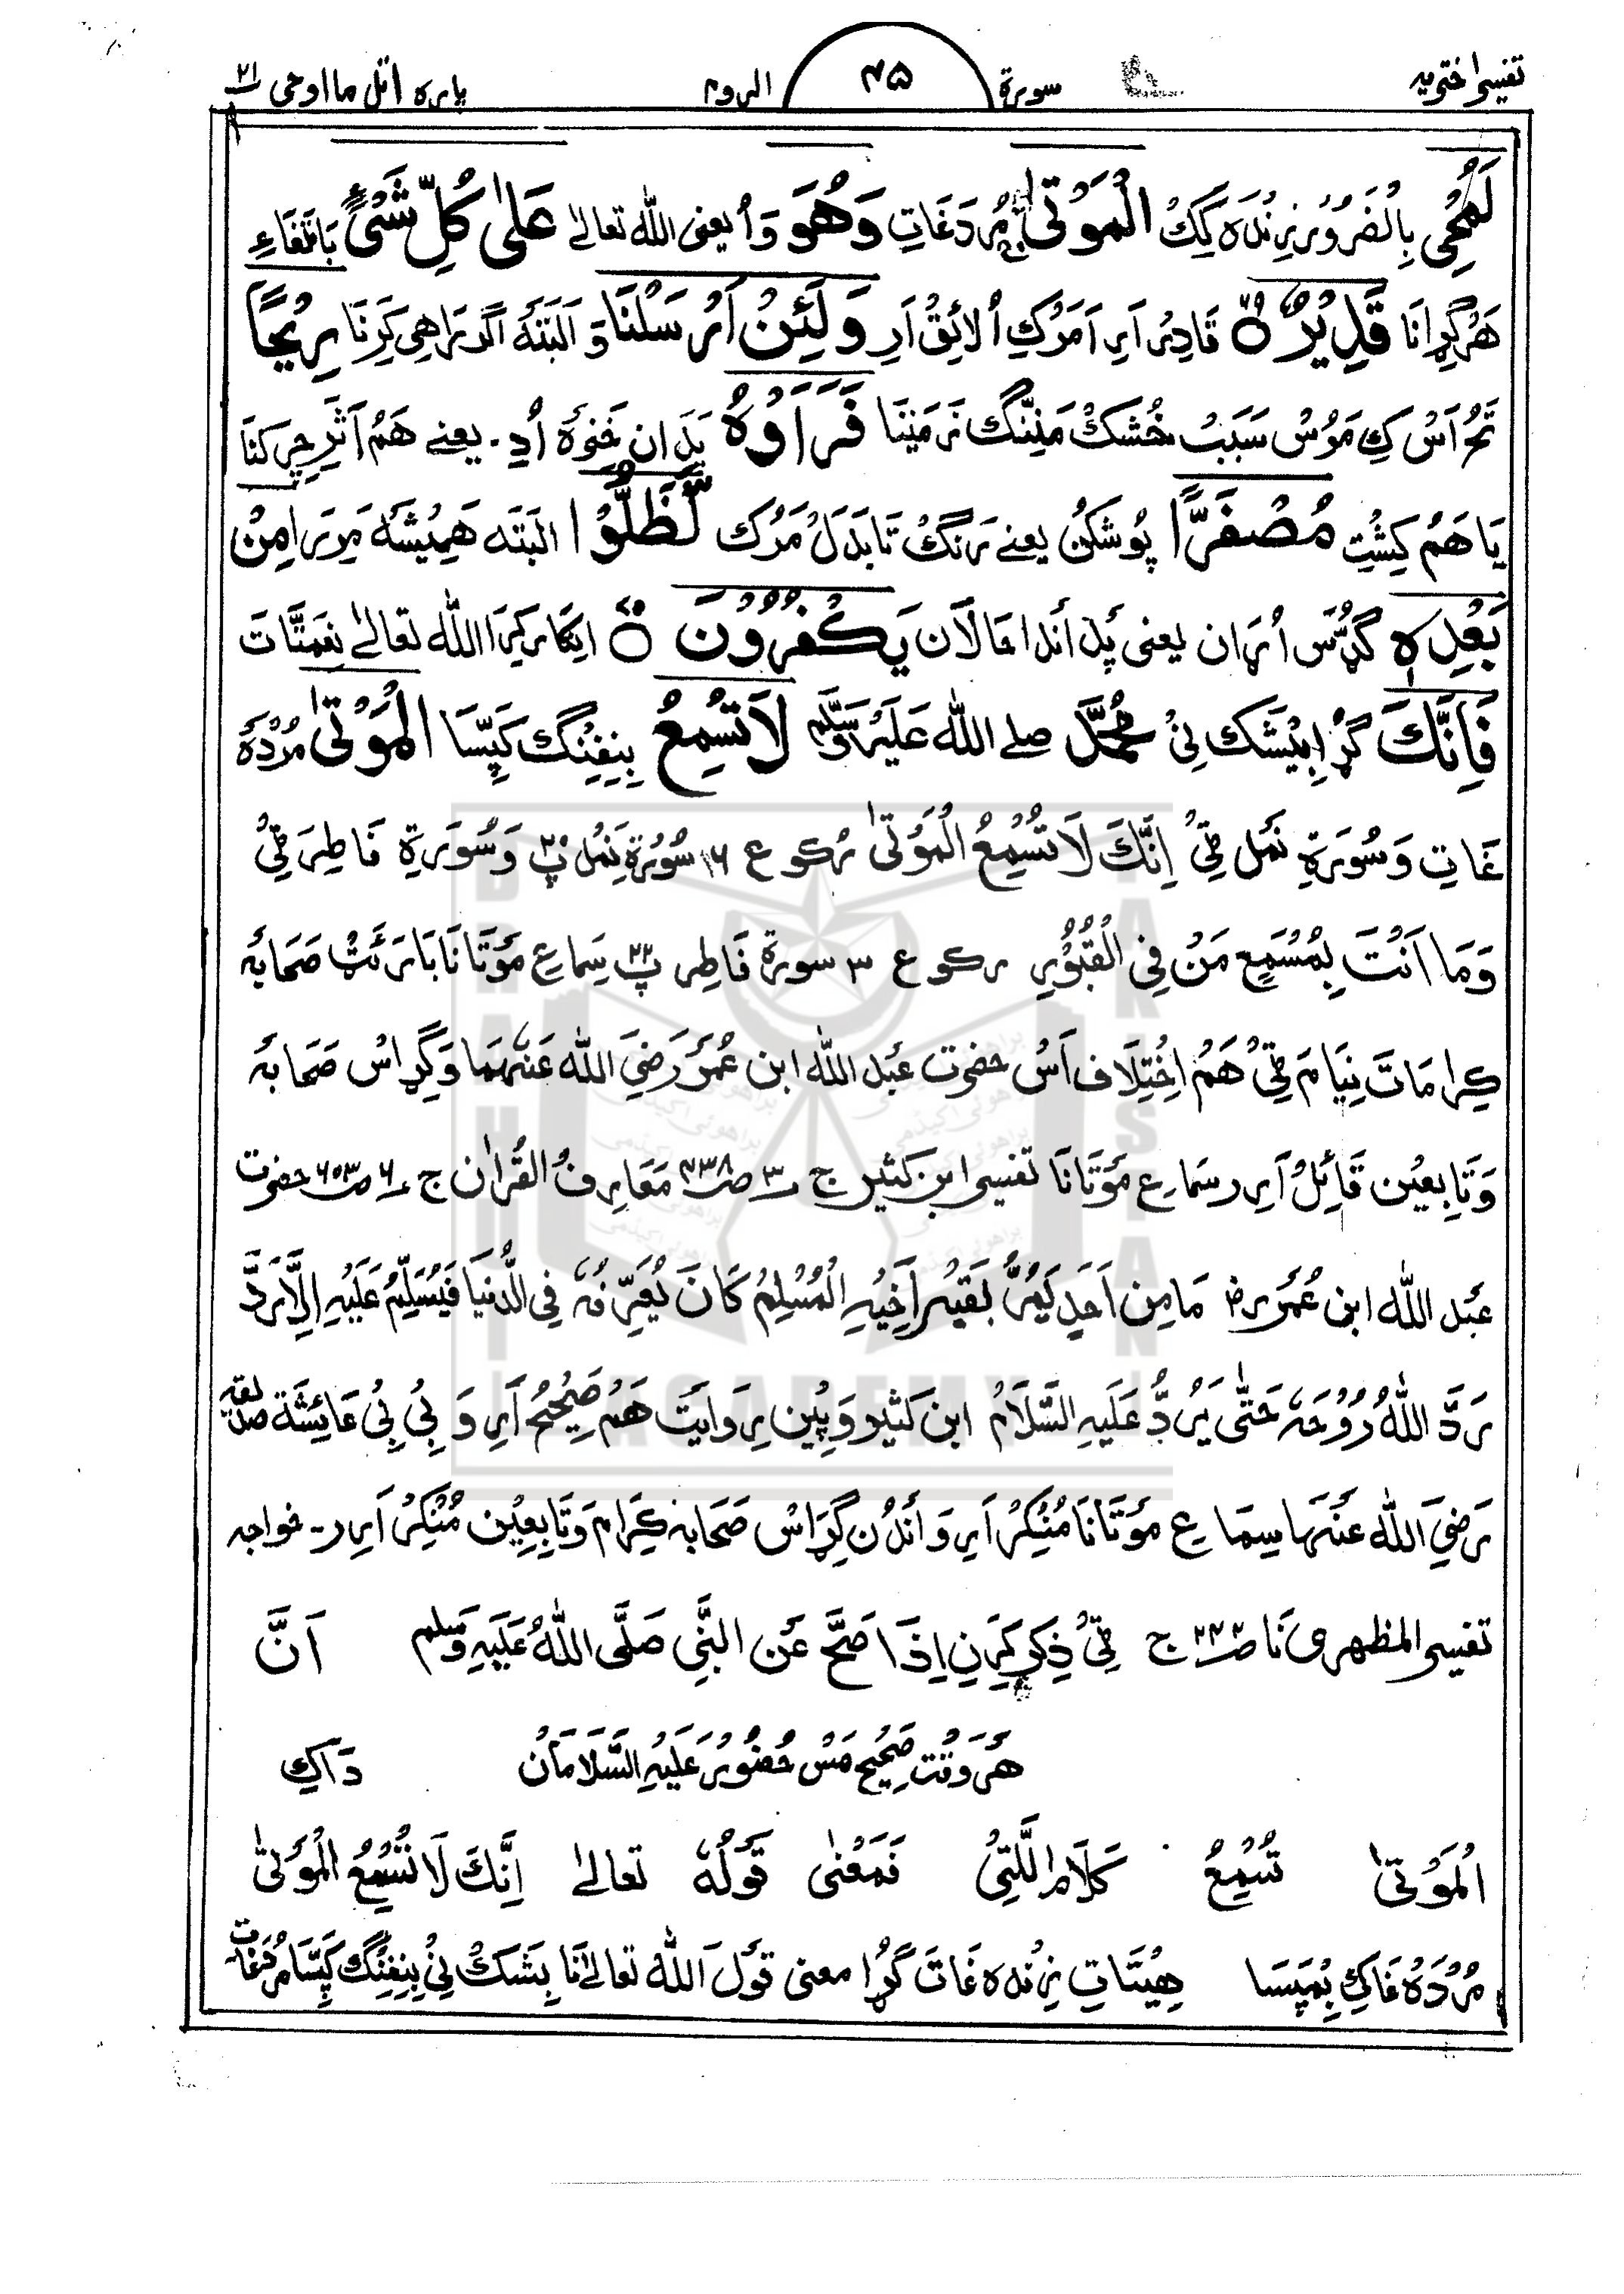 تفسیر اختریہ سورة ۴۵ الروم پارہ اتل ما اوحی ۲۱
لَمُحْیِ بِالْضَرُوْر زِنْدَہ کِکْ الْمَوْتٰی مُردَغَاتِ وَهُوَ وَاُ یعنی اللّٰہ تعالیٰ عَلٰی كُلِّ شَیْءٍ
هَرْ گِڑانَا قَدِیْرٌ ۵۰ قَادِر اَرِ اَمَرْکِ اُ لائِقْ اَرِ وَلَئِنْ اَرْسَلْنَا وَ اَلْبَتَہ اَگَر رَاهِی کِرِنَا رِیْحًا
تَهُ اَسْ کِ مَوُسْ سَبَبْ خُشکْ مَنِنَّگ نَ مَنِنَا فَرَاَوْهُ پَدَ ان خَنِرَہ اُدِ۔ یعنے هَمْ اَثَرِ
یَا هَمُ کِشْتِ مُصْفَرًّا پُوشکُن یعنے رَنگْ تَا بَدَلْ مَرُک لَّظَلُّوْا البَتَہ هَمِیْشَہ مَرِرَ مِنْ
بَعْدِهٖ گُڈَّس اُڑان یعنی پَد اَندا حَالَان یَكْفُرُوْنَ ۵۱ اِنکَار کِرَ اللّٰہ تعالیٰ نِعْمَتَاتَ
فَاِنَّكَ گُڑا بِیْشَک نِیْ مُحَمَّد صلے اللّٰہ عَلَیْہِ وَسَلَّم لَا تُسْمِعُ بِنِفِنِگ کَپِّسَا الْمَوْتٰی مُرْدَہ
غَاتِ وَ سُوْرَةِ نَمْل ٹِیْ اِنَّكَ لَا تُسْمِعُ الْمَوْتٰی رُکوع ۶ سُوْرَةِ نَمْل پ۲۰ وَ سُوْرَةِ فَاطِرْ ٹِیْ
وَمَا اَنْتَ بِمُسْمِعٍ مَنْ فِی الْقُبُوْرِ رکوع ۳ سورة فَاطِر پ۲۲ سِمَاعِ مَوْتَانَا بَارَئَٹْ صَحَابَہ
کِرامَاتَ نِیَامَ ٹِیْ هَمْ اِخْتِلَاف اَسْ حضرت عَبد اللّٰہ ابن عُمَر رَضِیَ اللّٰہ عَنْهُمَا وَ گِڑاسْ صَحَابَہ
وَتَابِعِیْن قَائِلْ اَرِر سَمَاعِ مَوْتَانَا تفسیر ابن کثیر ج ۳ ص ۴۳۸ مَعَارِفُ القُرْاٰن ج ۶ ص ۶۰۳ حضرت
عَبد اللّٰہ ابن عُمَر رض مَا مِن اَحَدٍ یَمُرُّ بِقَبْرِ اَخِیْہِ الْمُسْلِمُ کَانَ یُعَرِّفُہٗ فِی الدُّنْیَا فَیُسَلِّمُ عَلَیْہِ اِلَّا رَدَّ
رَدَّ اللّٰہُ رُوْحَہٗ حَتّٰی یَرُدُّ عَلَیْہِ السَّلَامُ ابن کثیر وَ پِیْن رِوَایَتْ هَمْ صَحِیْحْ اَرِ وَ بِیْ بِیْ عَائِشَۃ صدیقہ
رَضِیَ اللّٰہ عَنْهَا سِمَاعِ مَوْتَانَا مُنْکِرْ اَرِ وَ اَنْدُن گِڑَاسْ صَحَابَہ کِرَام وَتَابِعِیْن مُنْکِرْ اَرِر۔ خواجہ
تفسیر المظهری نَا ص ج ٹِیْ ذِکر کِرَنِ اِذَا صَحَّ عَنِ النَّبِی صَلَّی اللّٰہُ عَلَیْہِ وَسَلم اَنَّ
هَر وَقْت صَحِیْح مَسْ حُضُوْر عَلَیْہِ السَّلَامَان دَاکِ
الْمَوْتٰی تَسْمِعُ کَلَام اللَّتِیْ فَمَعْنٰی قَوْلُہٗ تعالیٰ اِنَّكَ لَا تُسْمِعُ الْمَوْتٰی
مُرْدَہ غَاکِ بِمِپَسَا هِیْتَاتِ زِنْدہ غَاتَ گُڑا معنی قَوْلَ اللّٰہُ تعالیٰ نَا بِشَکْ نِیْ بِنِفِنِگ کَپِّسَا مُردَغَاتِ
BRAHUI ACADEMY PAKISTAN
براهوئی اکیڈمی